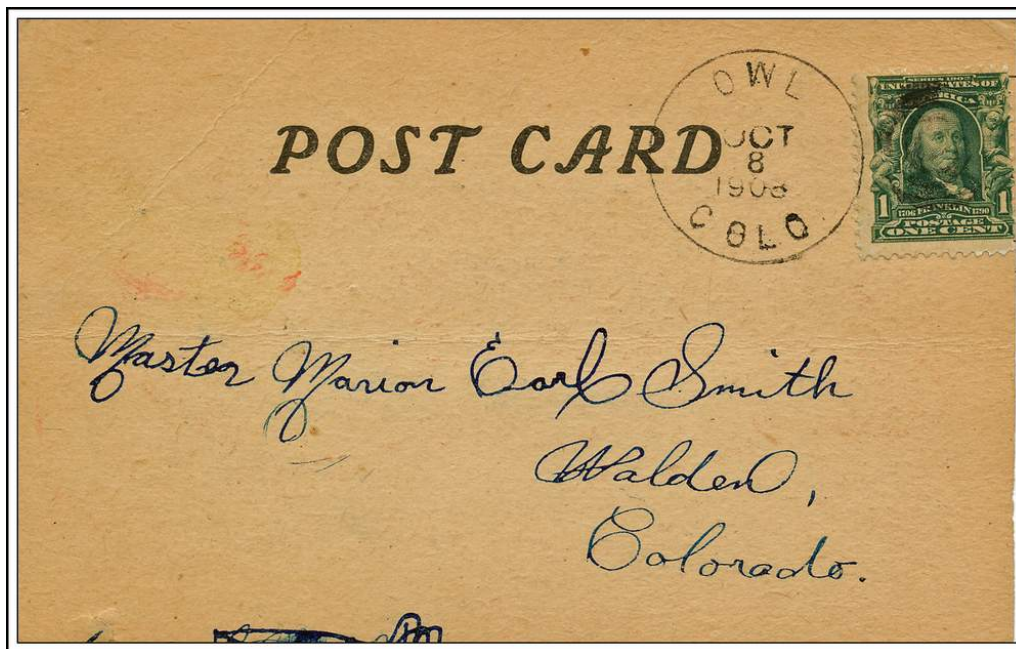 OWL
OCT
8
1908
COLO
SERIES 1902
UNITED STATES OF
AMERICA
1 1
1706 FRANKLIN 1790
POSTAGE
ONE CENT
POST CARD
Master Marion Earl Smith
Walden,
Colorado.